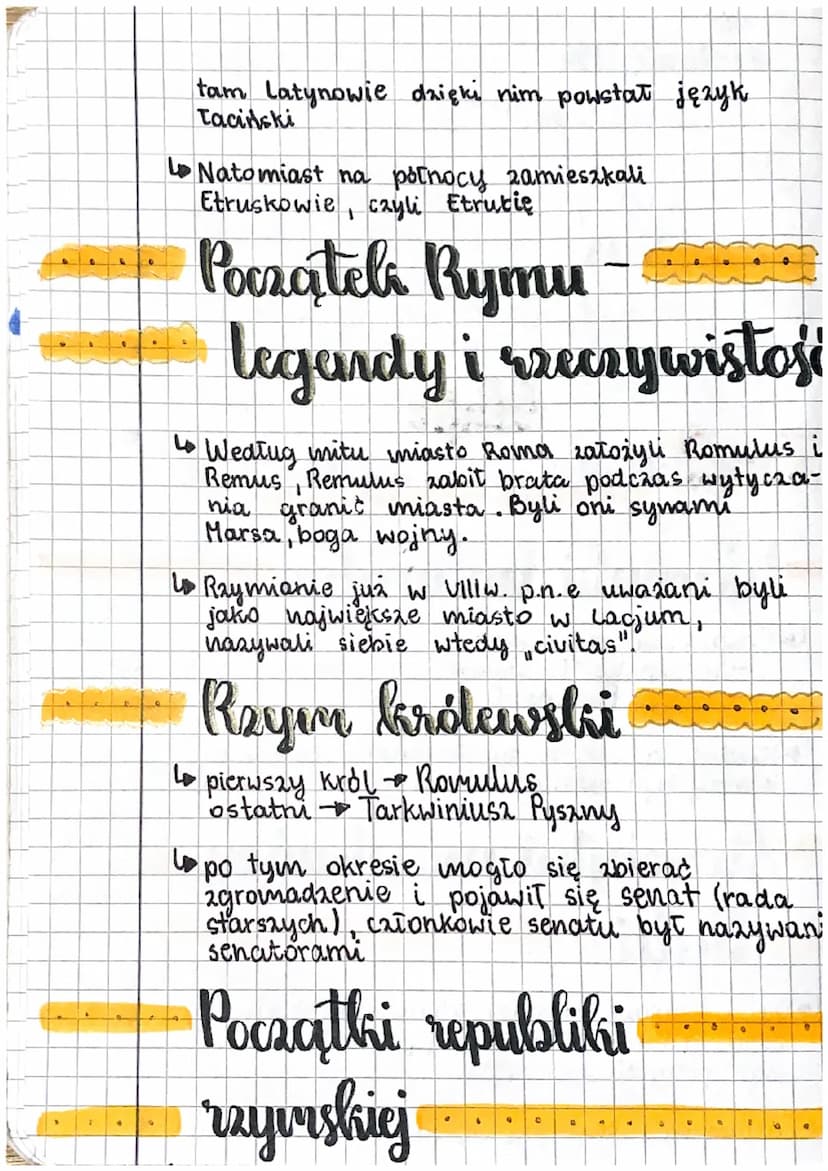 tam Latynowie dzięki nim powstał język
łaciński
↳ Natomiast na północy zamieszkali
Etruskowie, czyli Etrurię
Początek Rymu -
legendy i rzeczywistość
↳ Według mitu miasto Roma założyli Romulus i
Remus, Remulus zabił brata podczas wytycza-
nia granic miasta. Byli oni synami
Marsa, boga wojny.
↳ Rzymianie już w VIII w. p.n.e uważani byli
jako największe miasto w Lacjum,
nazywali siebie wtedy „civitas".
Rzym królewski
↳ pierwszy król → Romulus
ostatni → Tarkwiniusz Pyszny
↳ po tym okresie mogło się zbierać
zgromadzenie i pojawił się senat (rada
starszych), członkowie senatu był nazywani
senatorami
Początki republiki
rzymskiej